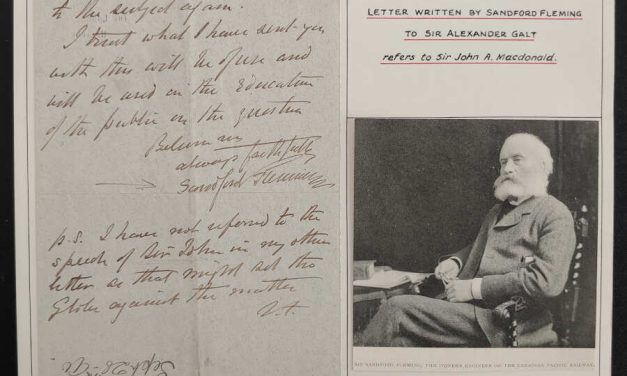 to the subject again.
I trust what I have sent you
with this will be of use and
will be used in the Education
of the public on the question
Believe me
always faithfully
Sandford Fleming
p.s. I have not referred to the
speech of Sir John in my other
letter as that might set the
Globe against the matter
Sept 28
LETTER WRITTEN BY SANDFORD FLEMING
TO SIR ALEXANDER GALT
refers to Sir John A. Macdonald.
SIR SANDFORD FLEMING, THE PIONEER ENGINEER OF THE CANADIAN PACIFIC RAILWAY.